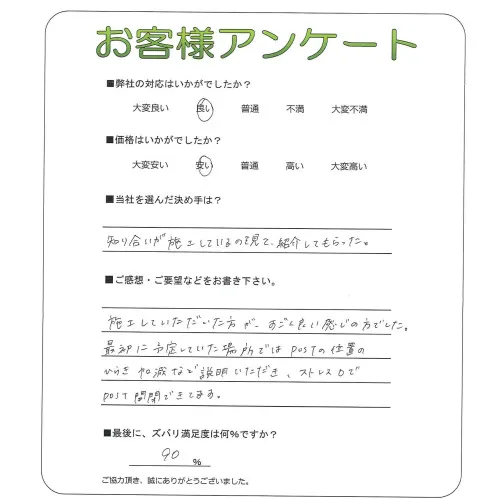 お客様アンケート
■弊社の対応はいかがでしたか？
大変良い 良い 普通 不満 大変不満
■価格はいかがでしたか？
大変安い 安い 普通 高い 大変高い
■当社を選んだ決め手は？
知り合いが施工しているのを見て、紹介してもらった。
■ご感想・ご要望などをお書き下さい。
施工していただいた方が、すごく良い感じの方でした。
最初に予定していた場所では POSTの位置の
ひらき加減など説明いただき、ストレス0で
POST開閉できてます。
■最後に、ズバリ満足度は何％ですか？
90 %
ご協力頂き、誠にありがとうございました。